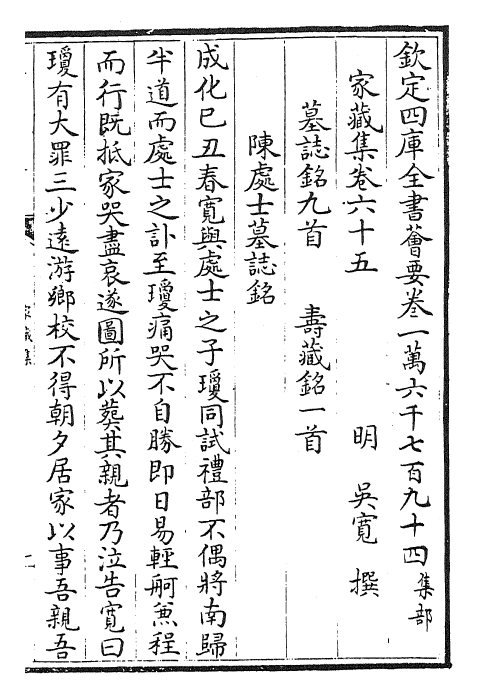 欽定四庫全書薈要卷一萬六千七百九十四集部
家藏集卷六十五 明 吳寬 撰
墓誌銘九首 壽藏銘一首
陳處士墓誌銘
成化巳丑春寛與處士之子瓊同試禮部不偶將南歸
半道而處士之訃至瓊痛哭不自勝即日易輕舸兼程
而行既抵家哭盡哀遂圖所以葬其親者乃泣告寛曰
瓊有大罪三少逺游鄉校不得朝夕居家以事吾親吾
家藏集